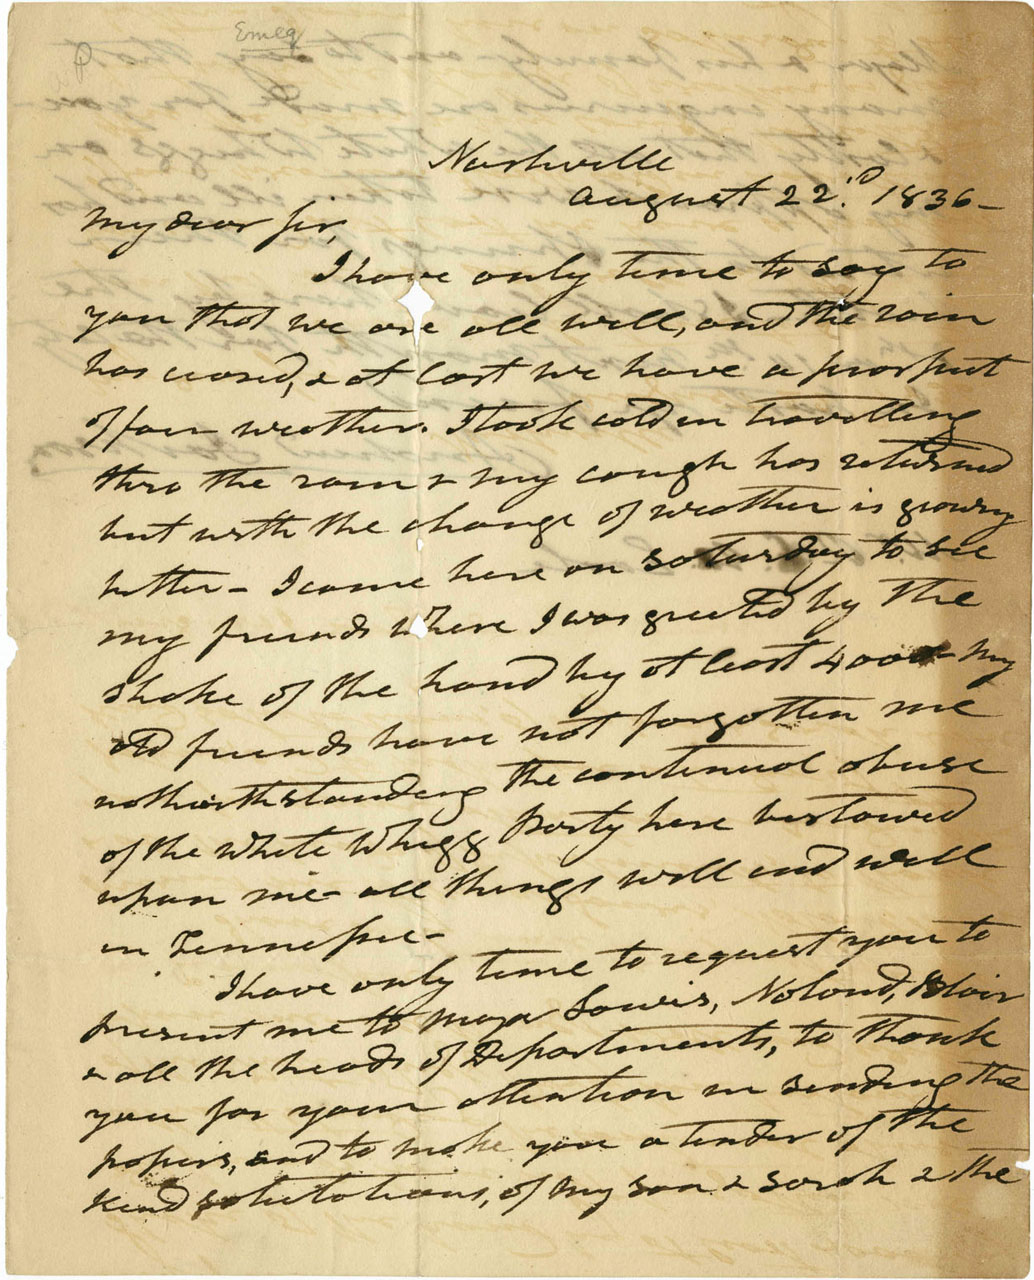 Emeq
Nashville
August 22d. 1836-
My dear Sir,
I have only time to say to
you that we are all well, and the rain
has ceased, & at last we have a prospect
of fair weather. I took cold in travelling
thro the rain & my cough has returned
but with the change of weather is growing
better - I came here on saturday to see
my friends where I was greeted by the
shake of the hand by at least 4000 - my
old friends have not forgotten me
nothwithstanding the continual abuse
of the White Whigg Party here bestowed
upon me - all things will end well
in Tennessee -
I have only time to request you to
present me to Major Lewis, Noland, Blair
& all the heads of Departments, to thank
you for your attention in sending the
papers, and to make you a tender of the
kind salutations, of my son & Sarah & the